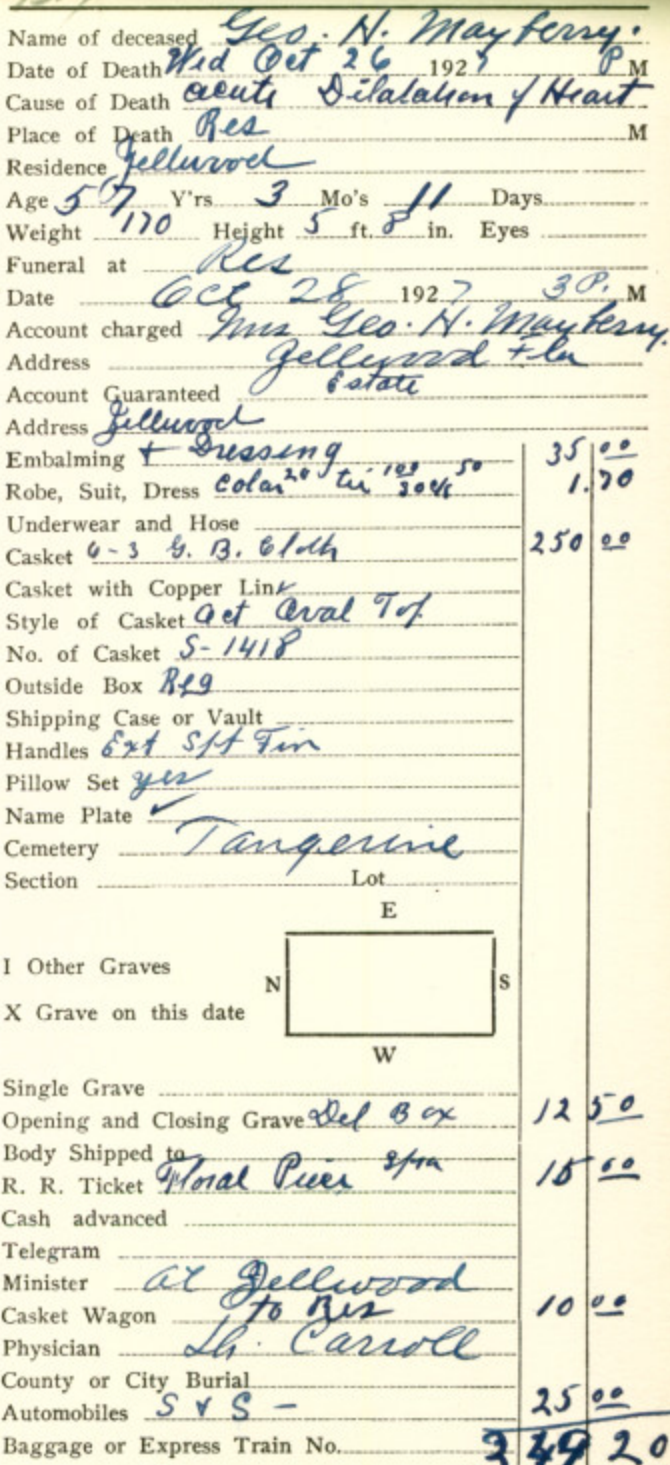 Name of deceased Geo. H. Mayberry.
Date of Death Wed Oct 26 1927 P M
Cause of Death acute Dilatation of Heart
Place of Death Res M
Residence Zellwood
Age 57 Y'rs 3 Mo's 11 Days
Weight 170 Height 5 ft. 8 in. Eyes
Funeral at Res
Date Oct 28 1927 3 P. M
Account charged Mrs Geo. H. Mayberry.
Address Zellwood Fla
Account Guaranteed Estate
Address Zellwood
Embalming + Dressing 35 00
Robe, Suit, Dress Colar 20 tie 100 50 1.70
Underwear and Hose
Casket 6-3 G. B. Cloth 250 00
Casket with Copper Lin
Style of Casket Oct Oval Top
No. of Casket S-1418
Outside Box Reg
Shipping Case or Vault
Handles Ext
Pillow Set yes
Name Plate ✓
Cemetery Tangerine
Section Lot
E
I Other Graves
N S
X Grave on this date
W
Single Grave
Opening and Closing Grave Del Box 12 50
Body Shipped to
R. R. Ticket Floral Piece 15 00
Cash advanced
Telegram
Minister at Zellwood
Casket Wagon to Res 10 00
Physician Carroll
County or City Burial
Automobiles S & S - 25 00
Baggage or Express Train No. 349 20